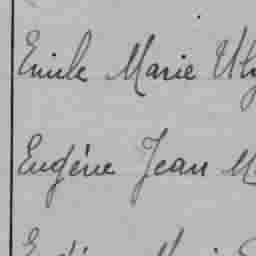 Emile Marie Uly
Eugène Jean M